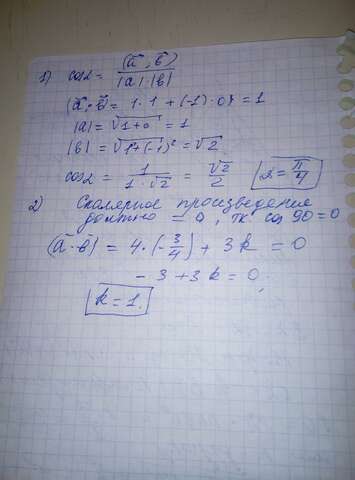 1) cos α = (a⃗, b⃗) / |a|·|b|
(a⃗·b⃗) = 1·1 + (-1)·0 = 1
|a| = √1+0 = 1
|b| = √1+(-1)² = √2
cos α = 1 / 1·√2 = √2 / 2 α = π / 4
2) Скалярное произведение
должно = 0, тк cos 90 = 0
(a⃗·b⃗) = 4·(-3/4) + 3k = 0
-3 + 3k = 0;
k = 1.